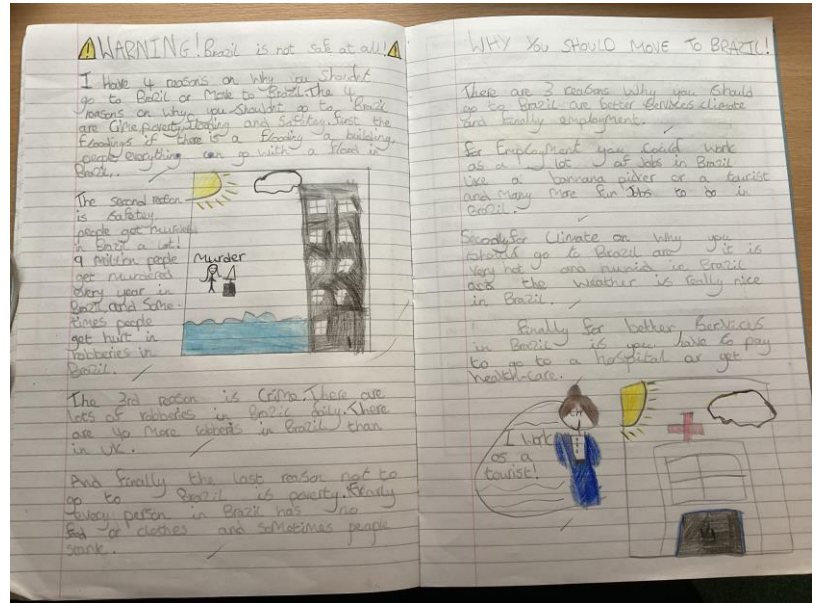 WARNING! Brazil is not safe at all!
I Have 4 reasons on why you shouldn't
go to Brazil or Move to Brazil. The 4
reasons on why you shouldn't go to Brazil
are Crime, poverty, flooding and Safetey. first the
floodings if there is a flooding a building,
people, everything can go with a flood in
Brazil.
The second reason
is Safetey.
people get murdered
in Brazil a lot!
9 million people
get murdered
every year in
Brazil and Some-
times people
get hurt in
robberies in
Brazil.
Murder
The 3rd reason is Crime. There are
lots of robberies in Brazil daily. There
are 40 More robberis in Brazil than
in UK.
And finally the last reason not to
go to Brazil is poverty. Nearly
every person in Brazil has no
food or clothes and sometimes people
stank.
WHY YOU SHOULD MOVE TO BRAZIL!
There are 3 reasons Why you Should
go to Brazil are better Services, climate
and finally employment.
for Employment you could work
as a lot of Jobs in Brazil
like a bannana picker or a tourist
and Many More fun Jobs to do in
Brazil.
Secondly for Climate on Why you
should go to Brazil are it is
very hot and humid in Brazil
and the weather is really nice
in Brazil.
finally for better Services
in Brazil is you have to pay
to go to a hospital or get
health-care.
I work
as a
tourist!